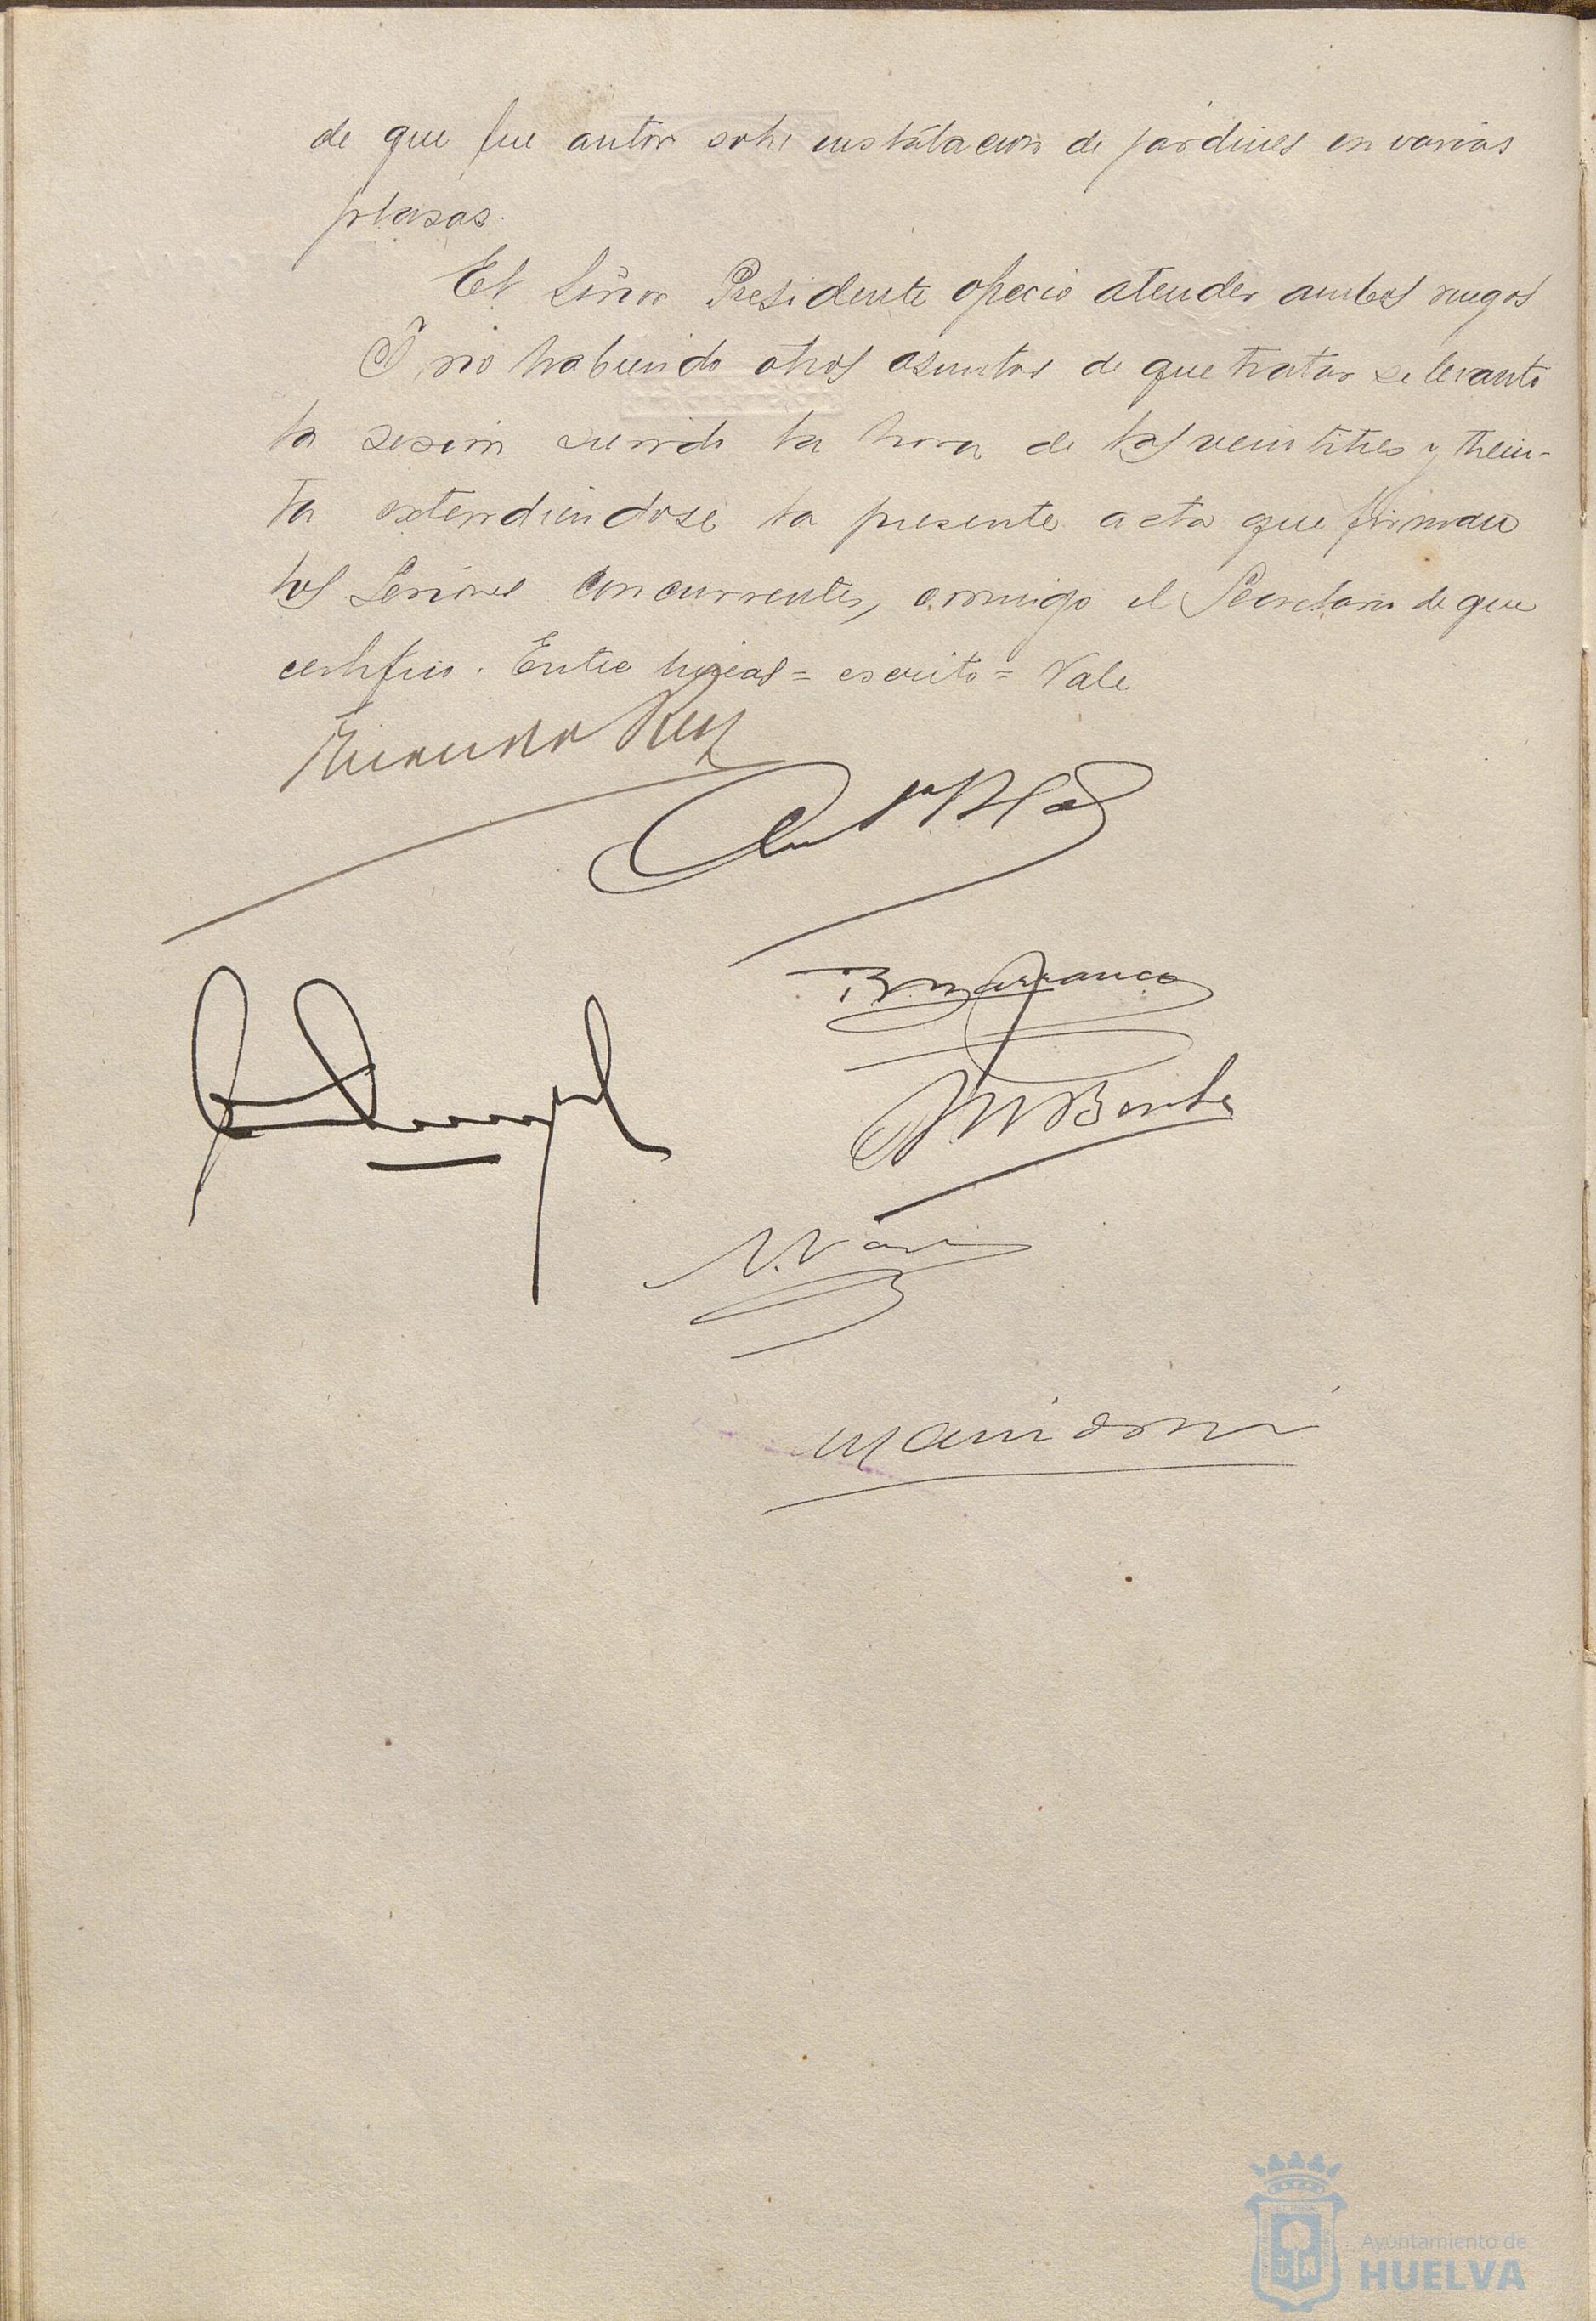 de que fue autor sobre instalacion de jardines en varias
plazas.
El Señor Presidente ofrecio atender ambos ruegos
Y no habiendo otros asuntos de que tratar se levanto
la sesion siendo la hora de las veintitres y trein-
ta extendiendose la presente acta que firman
los Señores concurrentes, conmigo el Secretario de que
certifico. Entre lineas = escrito = Vale
Barranco
Ayuntamiento de
HUELVA